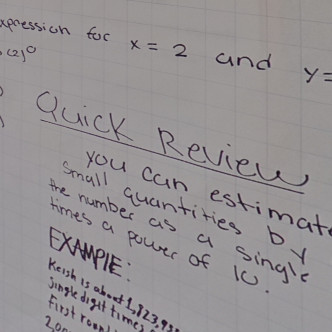 expression for x = 2 and y=
(2)⁰
Quick Review
you can estimate
small quantities by
the number as a single
times a power of 10.
EXAMPLE:
Keish is about 1,823,
single digit times
First round